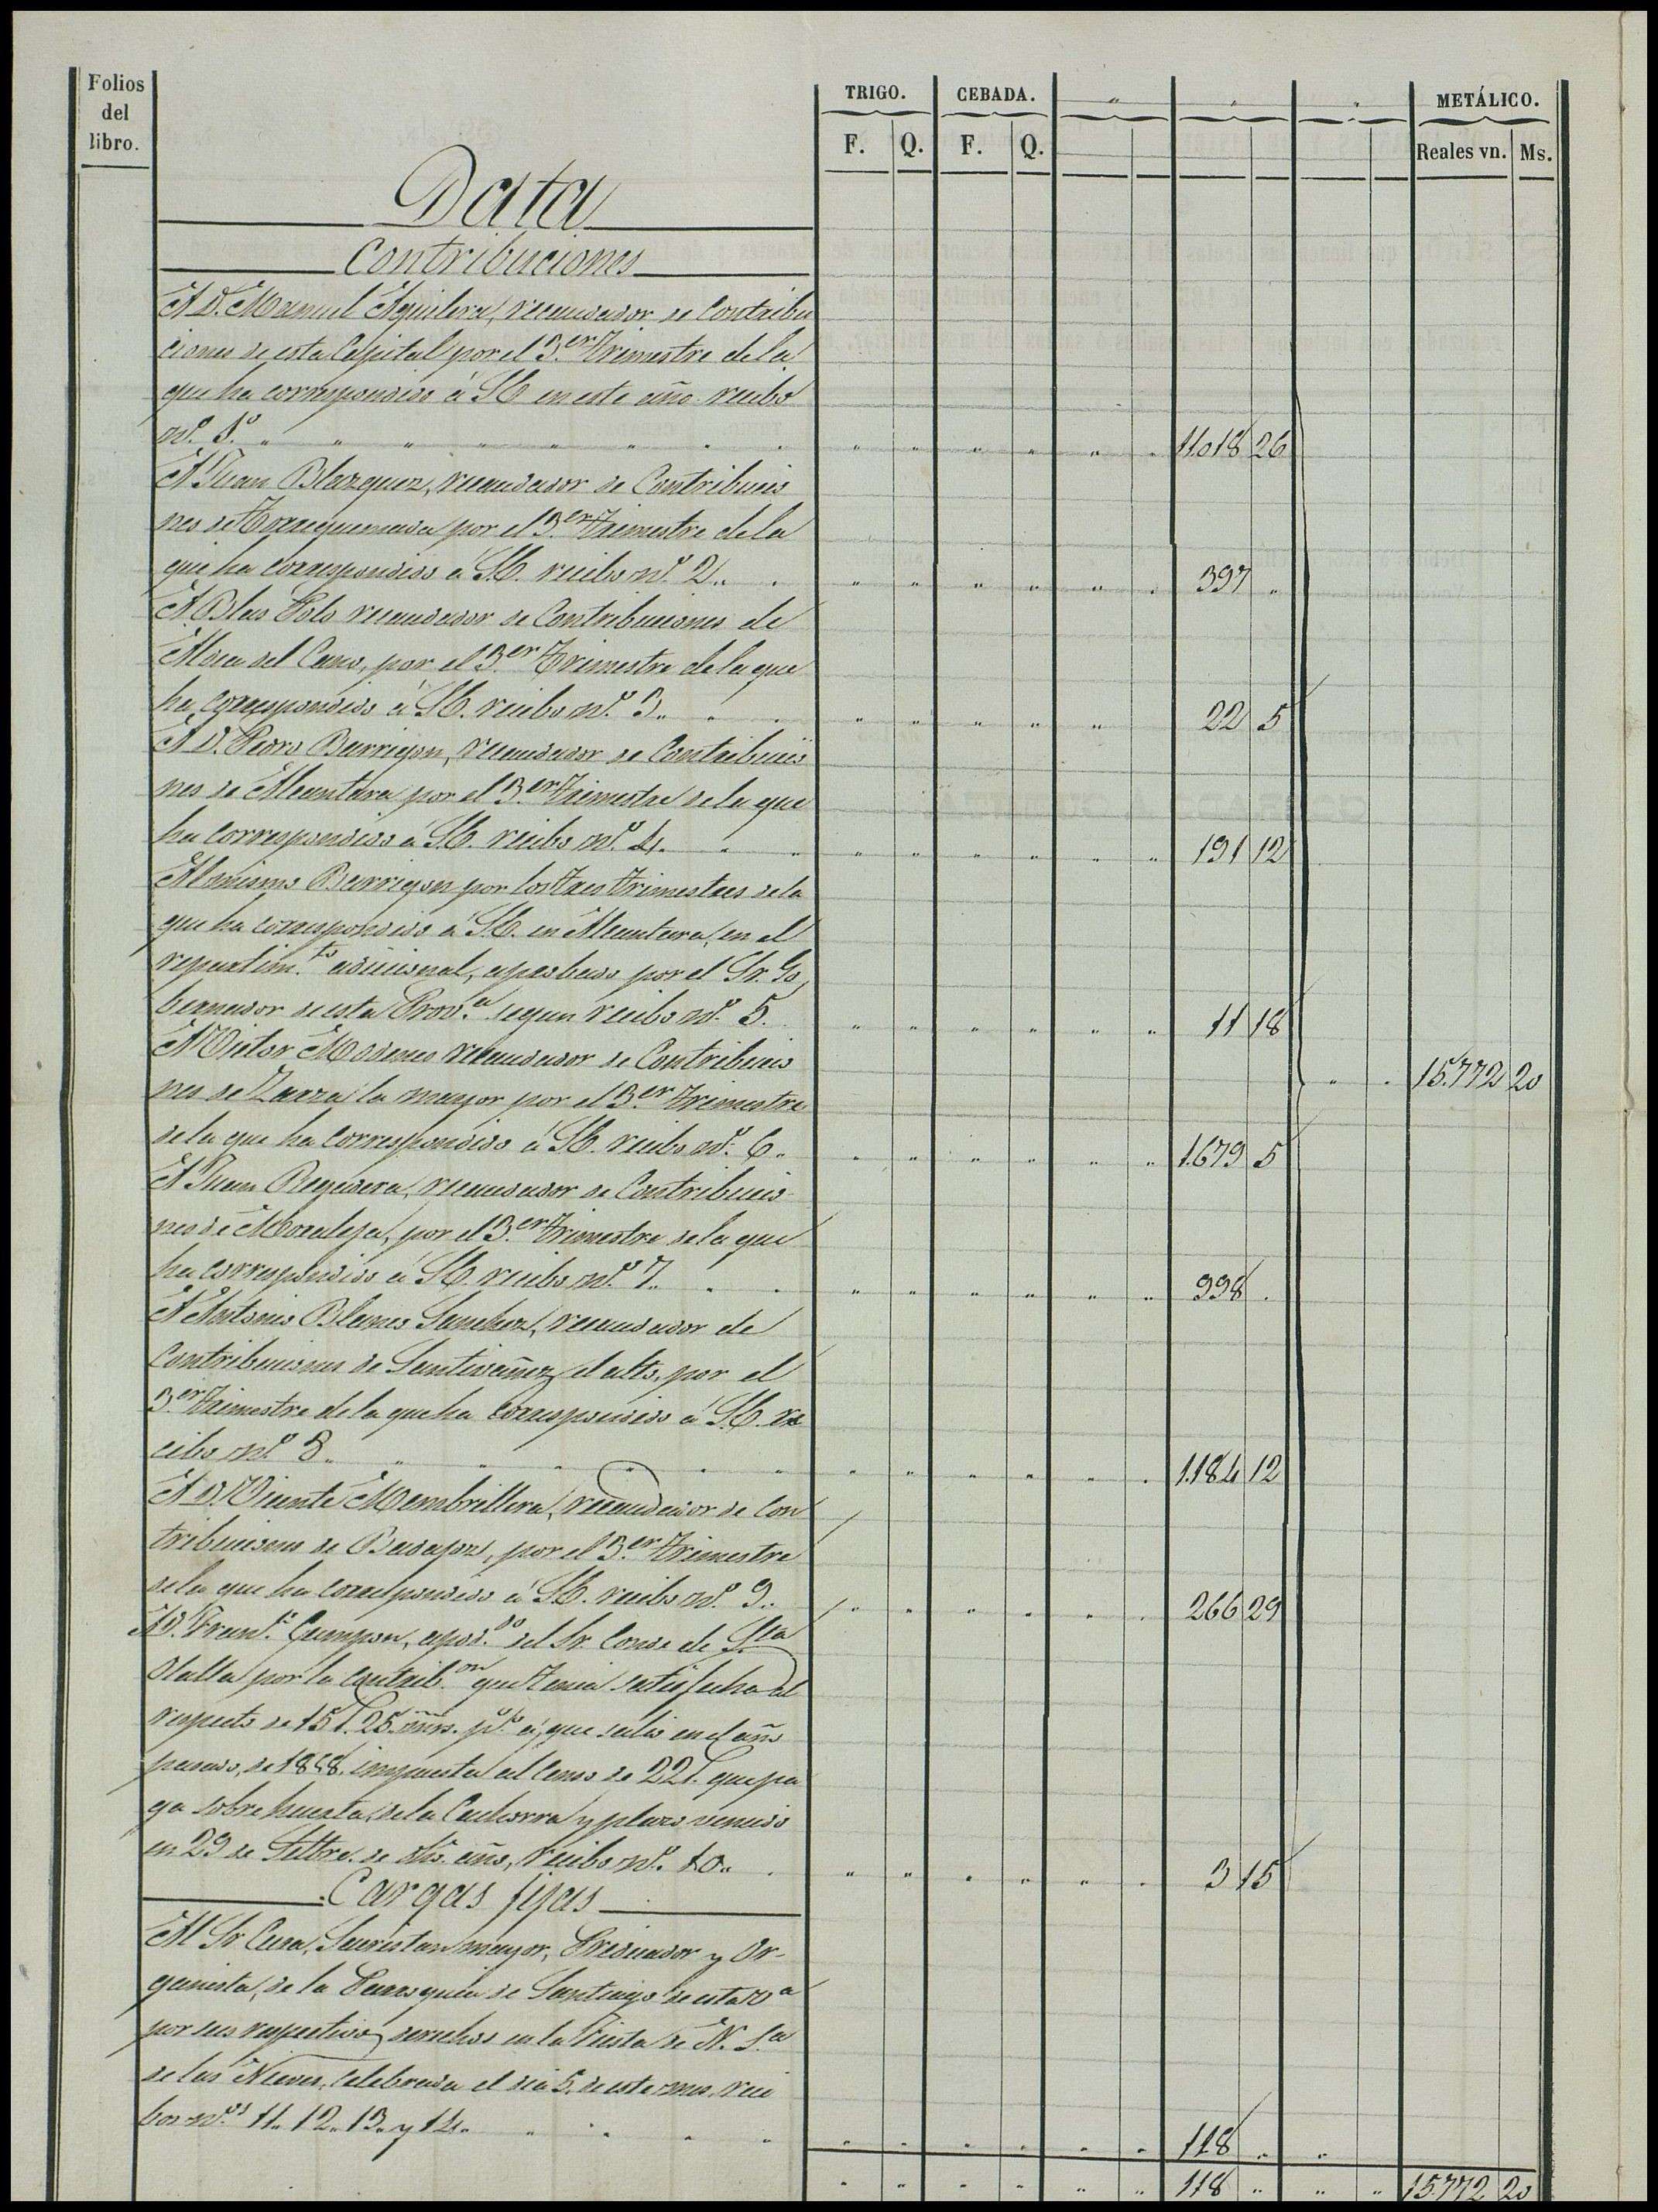 Folios
del
libro.
TRIGO. CEBADA. " " " METÁLICO.
F. Q. F. Q. Reales vn. Ms.
Data
Contribuciones
A D. Manuel Aguilera, recaudador de Contribu
ciones de esta Capital por el 3.er trimestre de la
que ha correspondido á S.E. en este año recibo
n.º 1.º " " " " " " " " " " " " " " 11.018 26
A Juan Blazquez, recaudador de Contribucio
nes de Torrequemada por el 3.er trimestre de la
que ha correspondido á S.E. recibo n.º 2. " " " " " " " 397 "
A Blas Polo recaudador de Contribuciones de
Aldea del Cano, por el 3.er Trimestre de la que
ha correspondido á S.E. recibo n.º 3. " " " " " " 22 5
A D. Pedro Barrigon, recaudador de Contribucio
nes de Alcantara por el 3.er trimestre de la que
ha correspondido á S.E. recibo n.º 4. " " " " " " " " 191 12
Al mismo Barrigon por los tres trimestres de la
que ha correspondido á S.E. en Alcantara, en el
repartim.to adicional, aprobado por el Sr. Go
bernador de esta Prov.a segun recibo n.º 5. " " " " " " 11 18
A Victor Modenes recaudador de Contribucio
" " 15.772 20
nes de Zarza la mayor por el 3.er trimestre
de la que ha correspondido á S.E. recibo n.º 6. " " " " " " 1.679 5
A Juan Regidera, recaudador de Contribucio
nes de Moraleja, por el 3.er trimestre de la que
ha correspondido á S.E. recibo n.º 7. " " " " " " " " 998 "
A Antonio Blanes Sanchez, recaudador de
Contribuciones de Santivañez el alto, por el
3.er trimestre de la que ha correspondido á S.E. re
cibo n.º 8. " " " " " " " " " " " " 1.184 12
A D. Vicente Membrillera, recaudador de Con
tribuciones de Badajoz, por el 3.er trimestre
de la que ha correspondido á S.E. recibo n.º 9. " " " " " " 266 29
A D. Fran.co Campon, apod.do del Sr. Conde de Sta
Olalla por la contrib.on que tenia satisfecha al
respecto de 15 r. 25 mrs. p.% á que salio en el año
pasado, de 1848. impuesta al Censo de 22 r. que pa
ga sobre huerta de la Cachorra y plazo vencido
en 29 de Setbre. de dho. año, recibo n.º 10. " " " " " " " 3 15
Cargas fijas
Al Sr Cura, Sacristan mayor, Predicador y Or-
ganista, de la Parroquia de Santiago de esta V.a
por sus respectivos derechos en la Fiesta de N. S.a
de las Nieves, celebrada el dia 5. de este mes, reci
bos n.os 11. 12. 13. y 14. " " " " " " " " " " 118 " "
" " " " " " 118 " " " 15.772 20